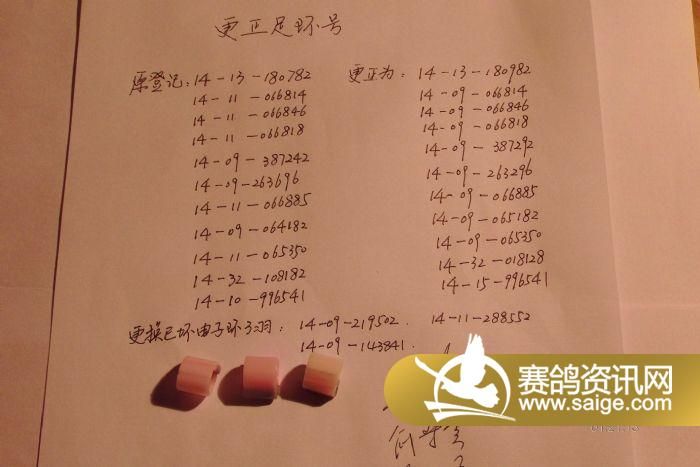 更正足环号
原登记：14-13-180782 更正为：14-13-180982
14-11-066814 14-09-066814
14-11-066846 14-09-066846
14-11-066818 14-09-066818
14-09-387242 14-09-387292
14-09-263696 14-09-263296
14-11-066885 14-09-066885
14-09-064182 14-09-065182
14-11-065350 14-09-065350
14-32-108182 14-32-018128
14-10-996541 14-15-996541
更换已坏电子环3羽：14-09-219502. 14-11-288552
14-09-143841.
赛鸽资讯网
www.saige.com